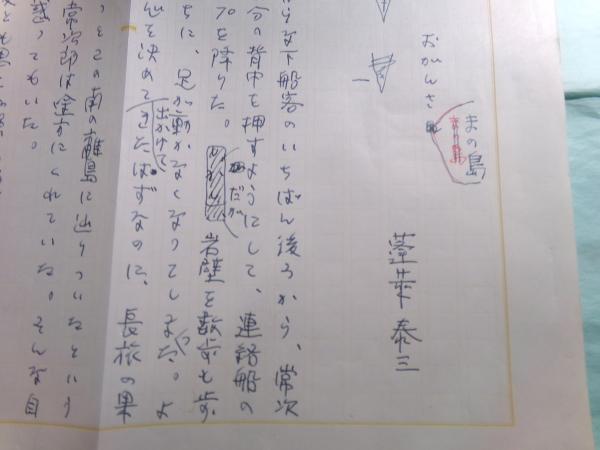 おがんさまの島
まの島
蓬莱泰三
らな下船客のいちばん後ろから、常次
分の背中を押すようにして、連絡船の
プを降りた。だが岩壁を数歩も歩
ちに、足が動かなくなってしまった。よ
心を決めて出かけてきたはずなのに、長旅の果
っとこの南の離島に辿りついたという
常次郎は途方にくれていた。そんな自
惑ってもいた。